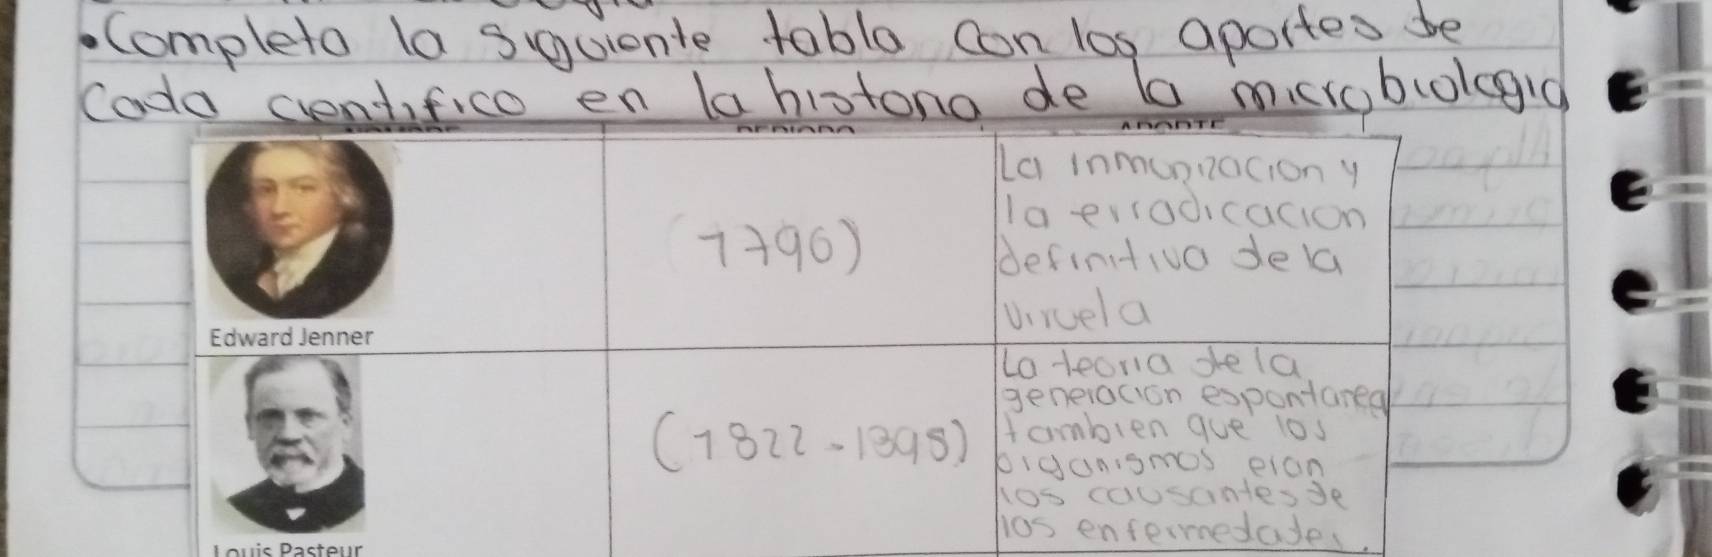 •Completa la siguiente tabla con los aportes de
Cada cientifico en la historia de la microbiologia
Edward Jenner
(1796)
La inmunizacion y
la erradicacion
definitiva de la
viruela
Louis Pasteur
(1822-1895)
La teoria de la
generacion espontanea
tambien que los
organismos eran
los causantes de
las enfermedades.